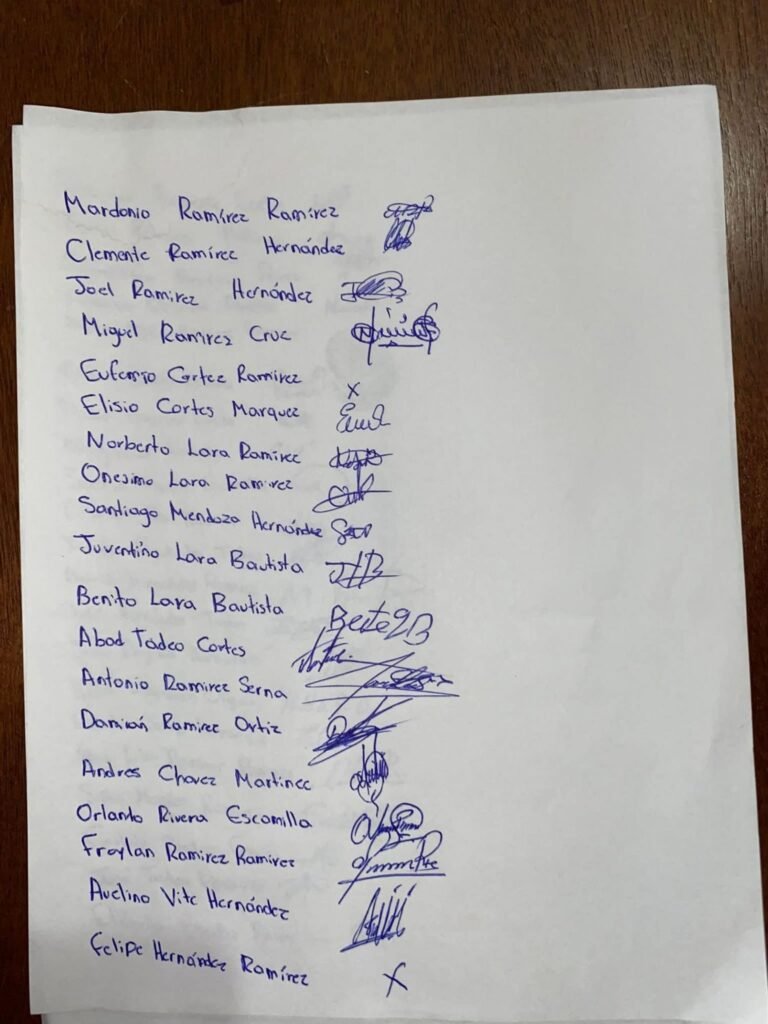 Mardonio Ramírez Ramírez
Clemente Ramírez Hernández
Joel Ramirez Hernández
Miguel Ramirez Cruz
Eufemio Cortez Ramirez x
Elisio Cortes Marquez
Norberto Lara Ramírez
Onesimo Lara Ramirez
Santiago Mendoza Hernández
Juventino Lara Bautista
Benito Lara Bautista
Abad Tadeo Cortes
Antonio Ramirez Serna
Damián Ramirez Ortiz
Andres Chavez Martinez
Orlando Rivera Escamilla
Froylan Ramirez Ramirez
Avelino Vite Hernández
Felipe Hernández Ramírez x